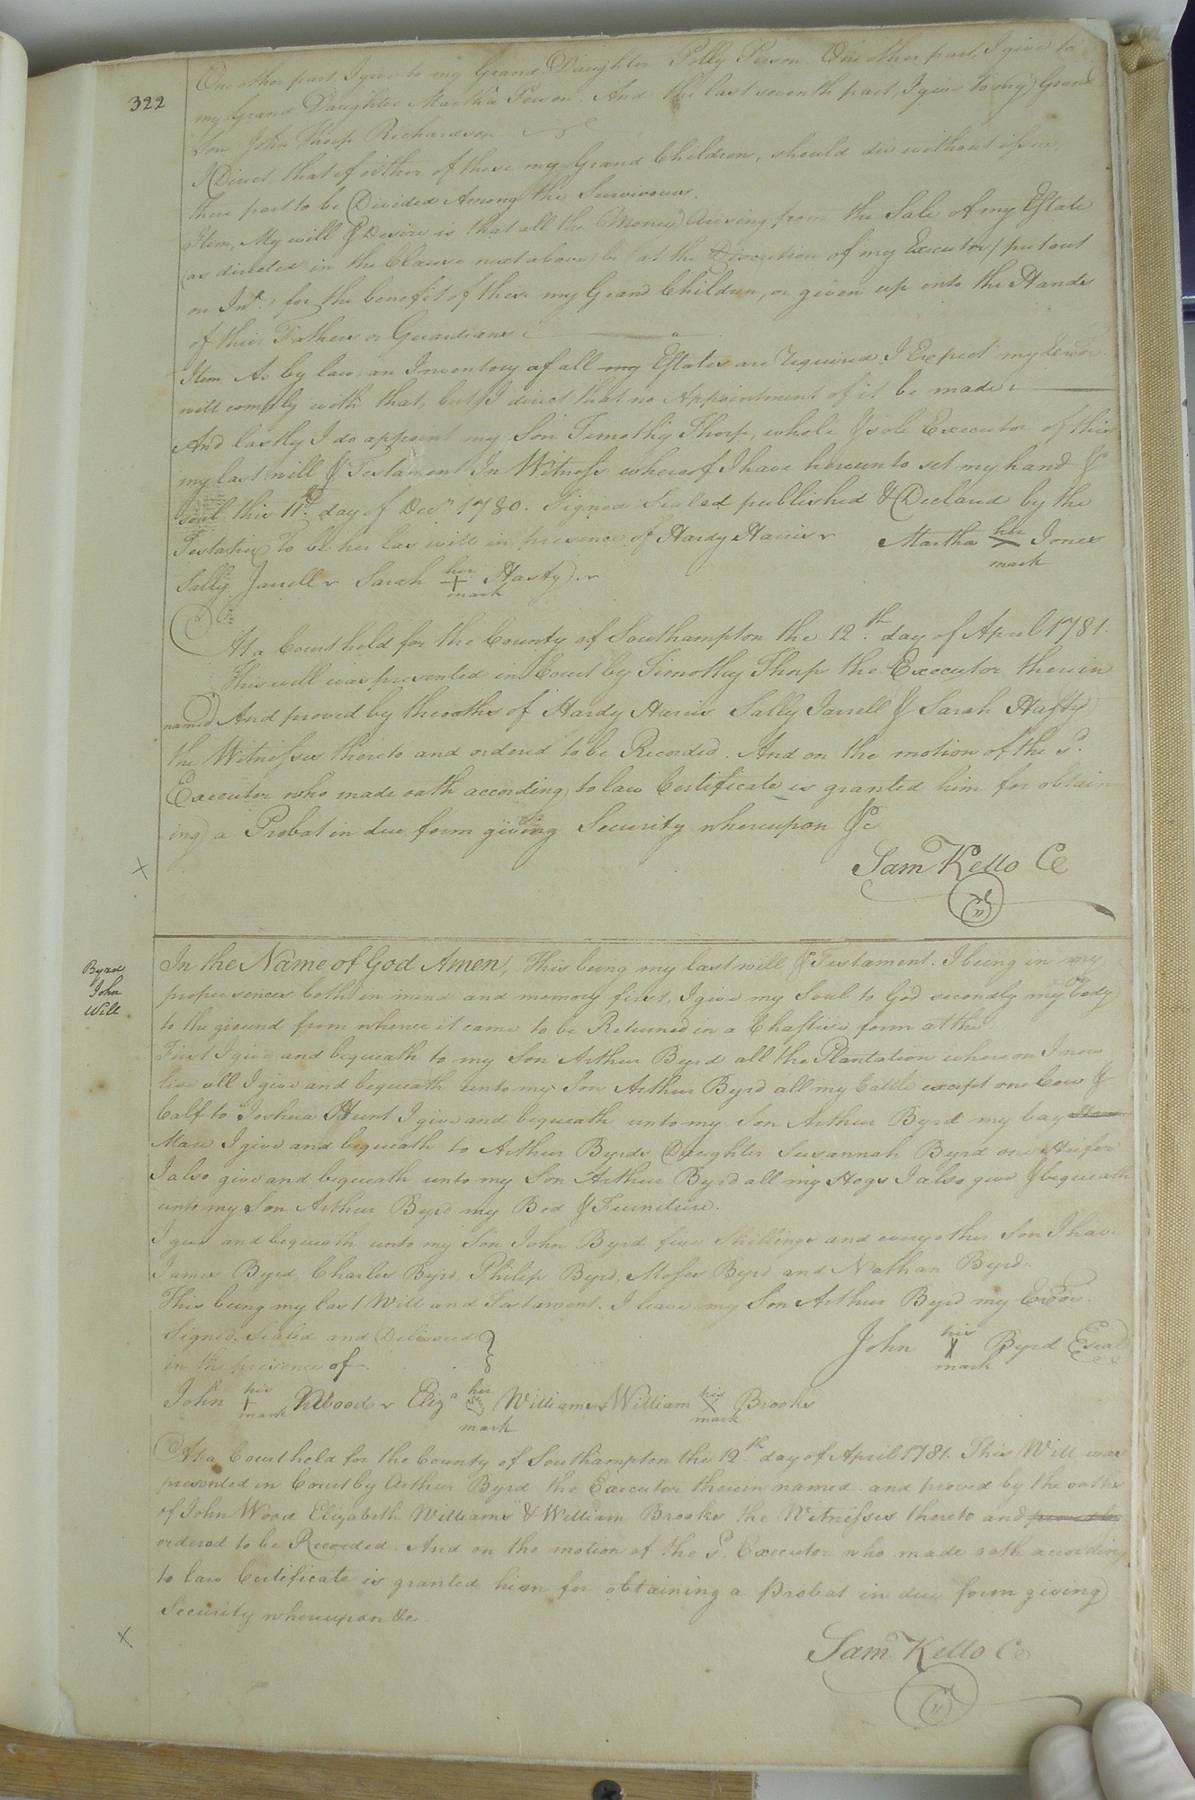 322
One other part I give to my Grand Daughter Polly Person One other part I give to
my Grand Daughter Martha Person And the last seventh part, I give to my Grand
Son John Thorp Richardson
I Direct, that if either of these my Grand Children, should die without issue,
there part to be Divided Among the Survivours.
Item, My will & Desire is that all the Money Arising from the Sale of my Estate
(as directed in the Clause next above) be (at the Discretion of my Executor) put out
on Int. for the benefit of these my Grand Children, or given up into the Hands
of their Fathers or Guardians
Item As by law an Inventory of all my Estates are required I Expect my Exeor
will comply with that, but I direct that no Appointment of it be made
And lastly I do appoint my Son Timothy Thorp, whole & sole Executor of this
my last will & Testament In Witness whereof I have hereunto set my hand &
seal this 11th day of Decr 1780. Signed Sealed published & Declared by the
Testatrix To be her las will in presence of Hardy Harris r Martha her X Jones
mark
Sally Jarrell r Sarah her + Hasty r
mark
At a Court held for the County of Southampton the 12th day of April 1781.
This will was presented in Court by Timothy Thorp the Executor therein
named And proved by the oaths of Hardy Harris Sally Jarrell & Sarah Hasty
the Witnesses thereto and ordered to be Recorded. And on the motion of the sd.
Executor who made oath according to law Certificate is granted him for obtain
ing a Probat in due form giving Security whereupon &c
Sam Kello CC
Byrd
John
Will
In the Name of God Amen, This being my last will & Testament. I being in my
proper sences both in mind and memory first, I give my Soul to God secondly my body
to the ground from whence it came to be Returned in a Chastise form at the
First I give and bequeath to my Son Arthur Byrd all the Plantation whereon I now
live all I give and bequeath unto my Son Arthur Byrd all my Cattle except one Cow &
Calf to Joshua Hunt I give and bequeath unto my Son Arthur Byrd my bay
Mare I give and bequeath to Arthur Byrds Daughter Susannah Byrd one Heifer
I also give and bequeath unto my Son Arthur Byrd all my Hogs I also give & bequeath
unto my Son Arthur Byrd my Bed & Furniture.
I give and bequeath unto my Son John Byrd five Shillings and every other Son I have
James Byrd, Charles Byrd, Philip Byrd, Moses Byrd and Nathan Byrd.
This being my last Will and Testament. I leave my Son Arthur Byrd my Exeor.
Signed Sealed and Delivered
in the presence of
John his X Byrd (seal)
mark
John his + Wood r Eliza her Williams r William his X Brooks
mark mark mark
At a Court held for the County of Southampton the 12th day of April 1781. This Will was
presented in Court by Arthur Byrd the Executor therein named and proved by the oaths
of John Wood Elizabeth Williams & William Brooks the Witnesses thereto and
ordered to be Recorded. And on the motion of the sd. Executor who made oath according
to law Certificate is granted him for obtaining a Probat in due form giving
Security whereupon &c
Sam Kello CC